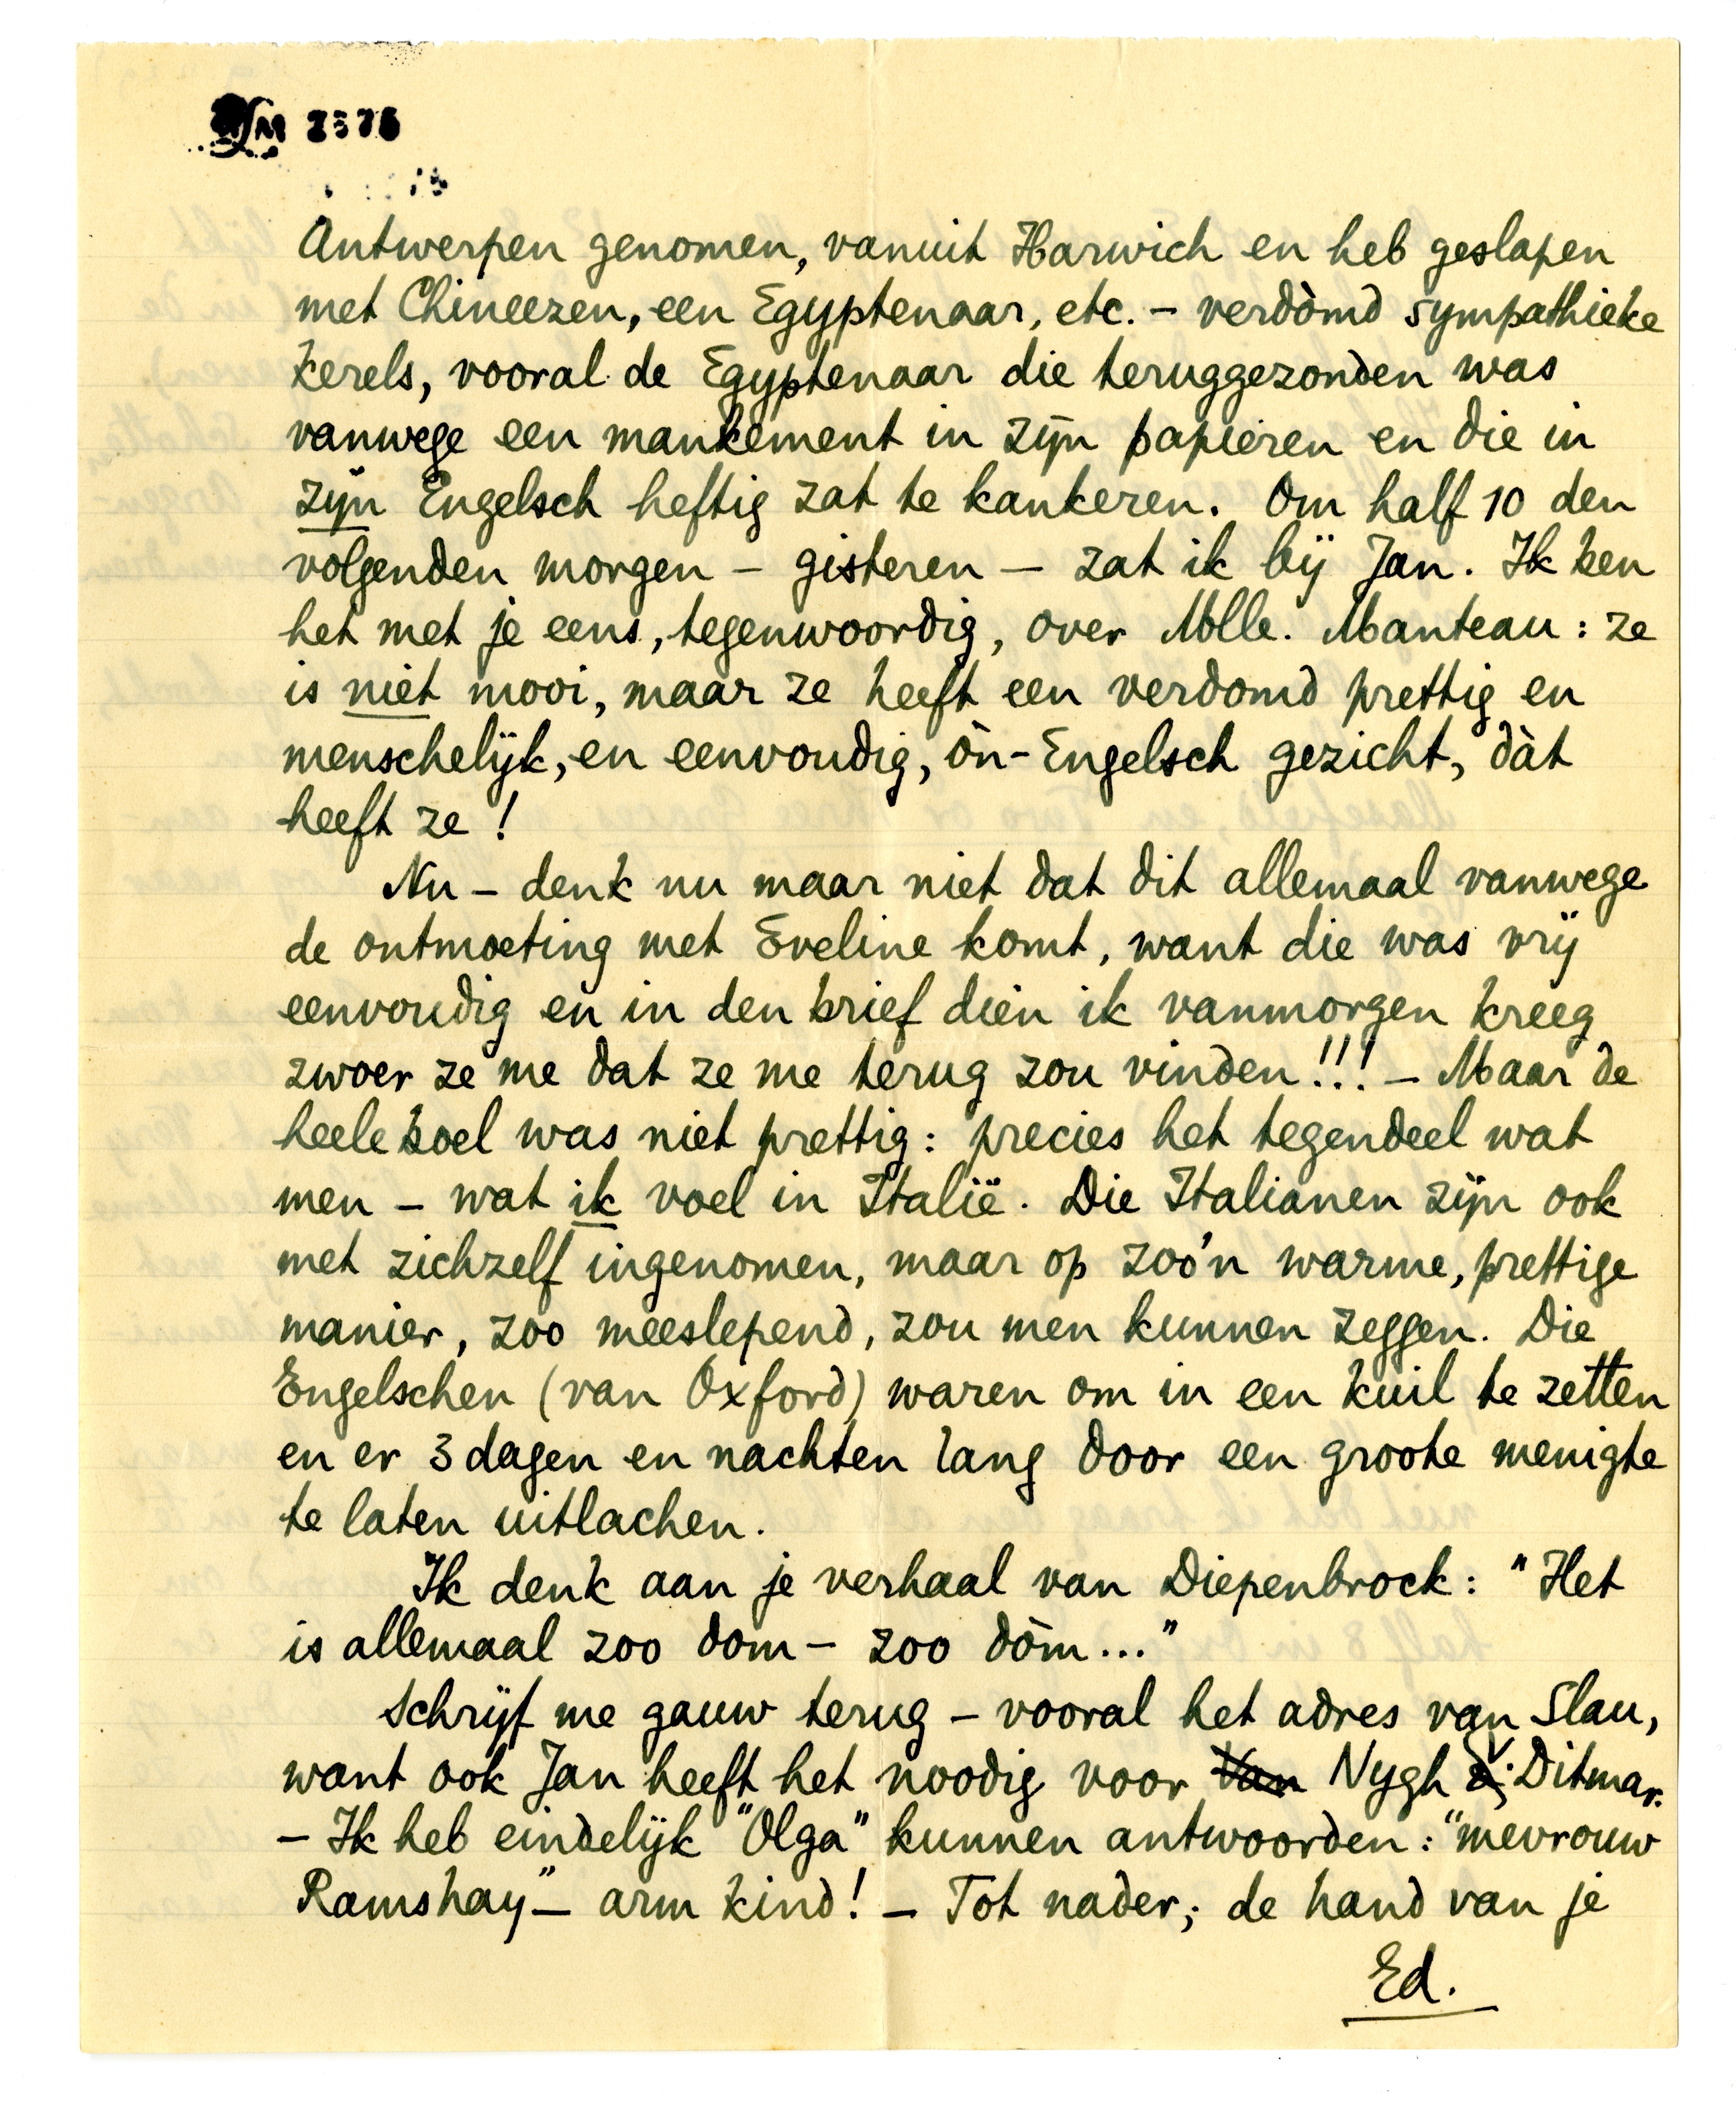 Antwerpen genomen, vanuit Harwich en heb geslapen
met Chineezen, een Egyptenaar, etc. – verdòmd sympathieke
kerels, vooral de Egyptenaar die teruggezonden was
vanwege een mankement in zijn papieren en die in
zijn Engelsch heftig zat te kankeren. Om half 10 den
volgenden morgen – gisteren – zat ik bij Jan. Ik ben
het met je eens, tegenwoordig, over Mlle. Manteau: ze
is niet mooi, maar ze heeft een verdomd prettig en
menschelijk, en eenvoudig, òn-Engelsch gezicht, dàt
heeft ze!
Nu – denk nu maar niet dat dit allemaal vanwege
de ontmoeting met Eveline komt, want die was vrij
eenvoudig en in den brief dien ik vanmorgen kreeg
zwoer ze me dat ze me terug zou vinden!!! – Maar de
heele boel was niet prettig: precies het tegendeel wat
men – wat ik voel in Italië. Die Italianen zijn ook
met zichzelf ingenomen, maar op zoo'n warme, prettige
manier, zoo meeslepend, zou men kunnen zeggen. Die
Engelschen (van Oxford) waren om in een kuil te zetten
en er 3 dagen en nachten lang door een groote menigte
te laten uitlachen.
Ik denk aan je verhaal van Diepenbrock: "Het
is allemaal zoo dom – zoo dòm..."
Schrijf me gauw terug – vooral het adres van Slau,
want ook Jan heeft het noodig voor Van Nygh v. Ditmar.
– Ik heb eindelijk "Olga" kunnen antwoorden: "mevrouw
Ramshay" – arm kind! – Tot nader; de hand van je
Ed.